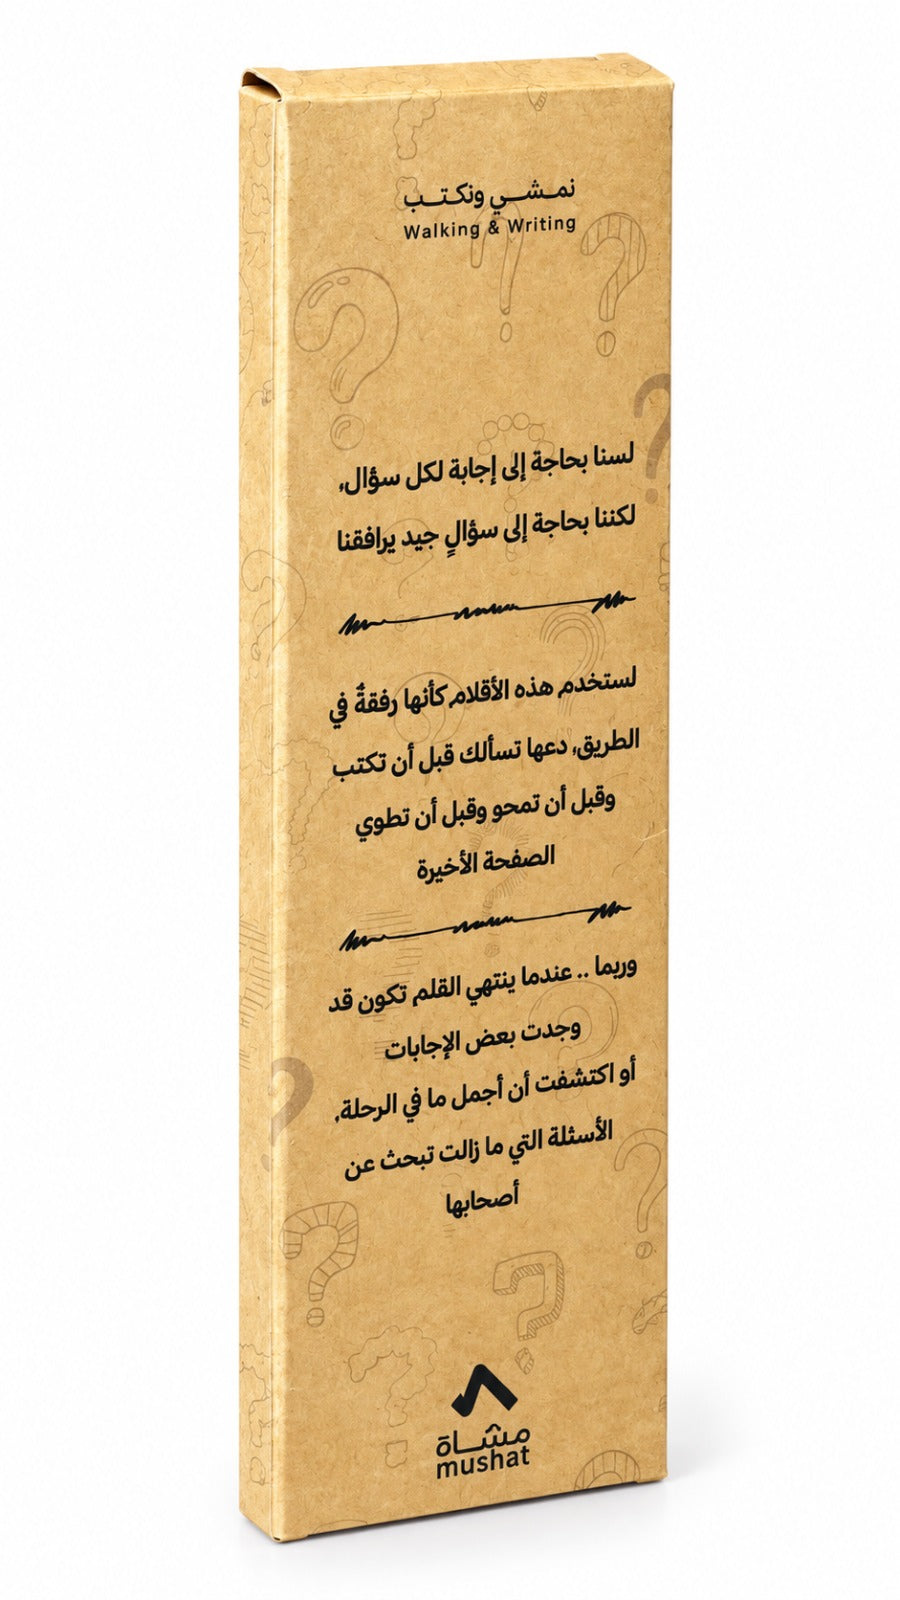 نمشي ونكتب
Walking & Writing
لسنا بحاجة إلى إجابة لكل سؤال،
لكننا بحاجة إلى سؤالٍ جيد يرافقنا
لستخدم هذه الأقلام كأنها رفقةٌ في
الطريق، دعها تسألك قبل أن تكتب
وقبل أن تمحو وقبل أن تطوي
الصفحة الأخيرة
وربما .. عندما ينتهي القلم تكون قد
وجدت بعض الإجابات
أو اكتشفت أن أجمل ما في الرحلة,
الأسئلة التي ما زالت تبحث عن
أصحابها
مشاة
mushat